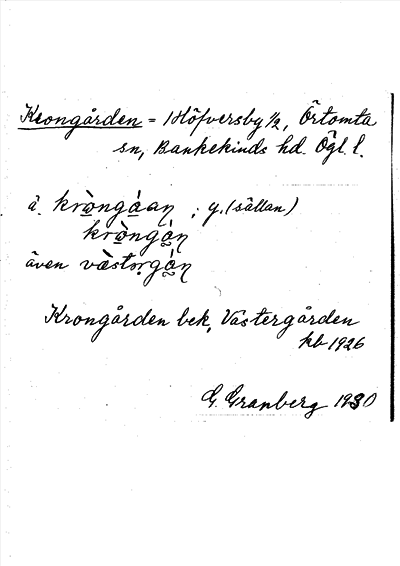 Krongården = Höfversby 1/2, Örtomta
sn, Bankekinds hd. Ögl. l.
ä. kròngáaꞑ ; y. (sällan)
kròngáꞑ
även vàstorgáꞑ
Krongården bek, Västergården
kb 1926
G. Granberg 1930